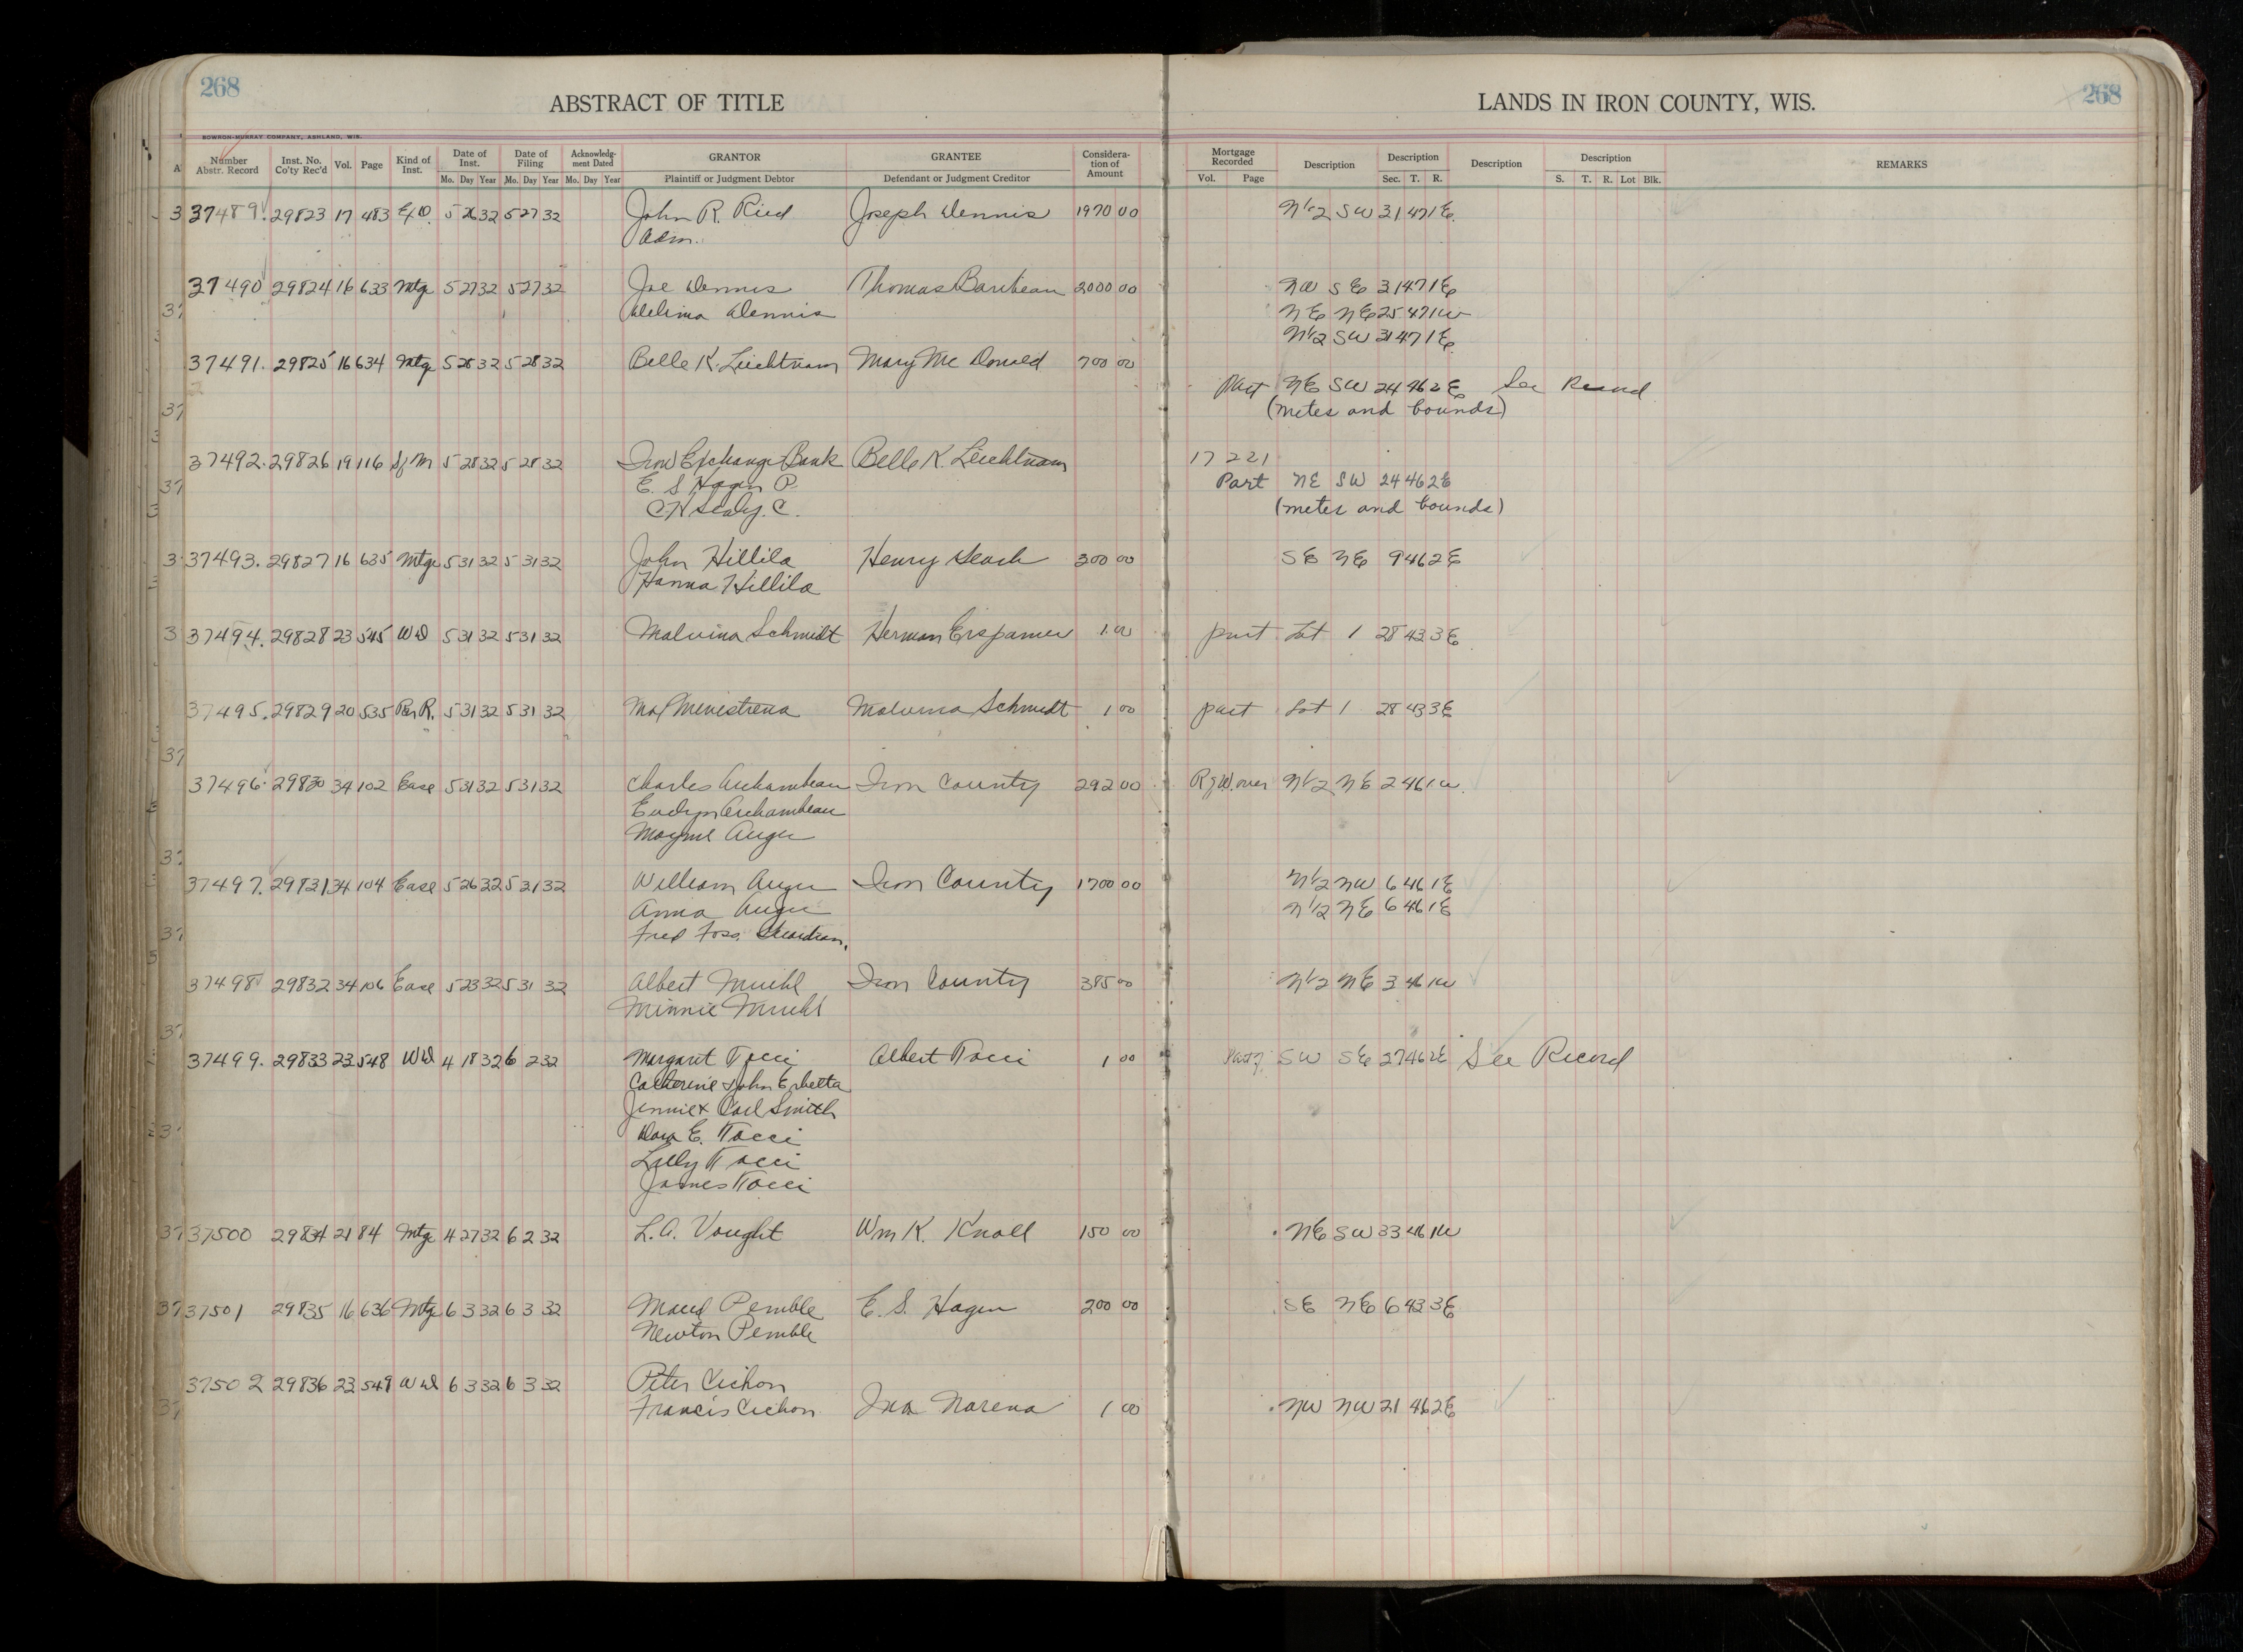 268
ABSTRACT OF TITLE
LANDS IN IRON COUNTY, WIS.
268
BOWRON-MURRAY COMPANY, ASHLAND, WIS.
Number Abstr. Record Inst. No. Co'ty Rec'd Vol. Page Kind of Inst. Date of Inst. Date of Filing Acknowledg-ment Dated GRANTOR GRANTEE Considera-tion of Amount Mortgage Recorded Description Description Description Description REMARKS
Mo. Day Year Mo. Day Year Mo. Day Year Plaintiff or Judgment Debtor Defendant or Judgment Creditor Vol. Page Sec. T. R. S. T. R. Lot Blk.
37489. 29823 17 483 ExD. 5 26 32 5 27 32 John R. Ried Joseph Dennis 1970 00 N1/2 SW 31 47 1E
Adm.
37490 29824 16 633 Mtge 5 27 32 5 27 32 Joe Dennis Thomas Baribeau 2000 00 NW SE 31 47 1E
Delima Dennis NE NE 25 47 1W
N1/2 SW 31 47 1E
37491. 29825 16 634 Mtge 5 28 32 5 28 32 Belle K. Leichtnam Mary Mc Donald 700 00
Part NE SW 24 46 2E See Record
(metes and bounds)
37492. 29826 19 116 SfM 5 28 32 5 28 32 Iron Exchange Bank Belle K. Leichtnam 17 221
E. S Hagen P. Part NE SW 24 46 2E
C H Sealy. C. (metes and bounds)
37493. 29827 16 635 Mtge 5 31 32 5 31 32 John Hillila Henry 300 00 SE NE 9 46 2E
Hanna Hillila
37494. 29828 23 545 WD 5 31 32 5 31 32 Malvina Schmidt Herman Erspamer 1 00 part Lot 1 28 43 3E
37495. 29829 20 535 Par R. 5 31 32 5 31 32 Max Malvina Schmidt 1 00 part Lot 1 28 43 3E
37496. 29830 34 102 Ease 5 31 32 5 31 32 Charles Archambeau Iron County 292 00 R of W. over N1/2 NE 2 46 1W.
Evelyn Archambeau
Mayme Auger
37497. 29831 34 104 Ease 5 26 32 5 31 32 William Auger Iron County 1700 00 N1/2 NW 6 46 1E
Anna Auger N1/2 NE 6 46 1E
Fred Foss, Guardian.
37498 29832 34 106 Ease 5 23 32 5 31 32 Albert Muehl Iron County 385 00 N1/2 NE 3 46 1W
Minnie Muehl
37499. 29833 23 548 WD 4 18 32 6 2 32 Margaret Tocci Albert Tocci 1 00 Part of SW SE 27 46 2E See Record
Catherine & John Erbetta
Jennie & Carl Smith
Dora E. Tocci
Lally Tocci
James Tocci
37500 29834 21 84 Mtge 4 27 32 6 2 32 L.A. Vought Wm K. Knoll 150 00 NE SW 33 46 1W
37501 29835 16 636 Mtge 6 3 32 6 3 32 Maud Pemble E. S. Hagen 200 00 SE NE 6 43 3E
Newton Pemble
37502 29836 23 549 WD 6 3 32 6 3 32 Peter Cichon
Francis Cichon Ina Narena 1 00 NW NW 21 46 2E